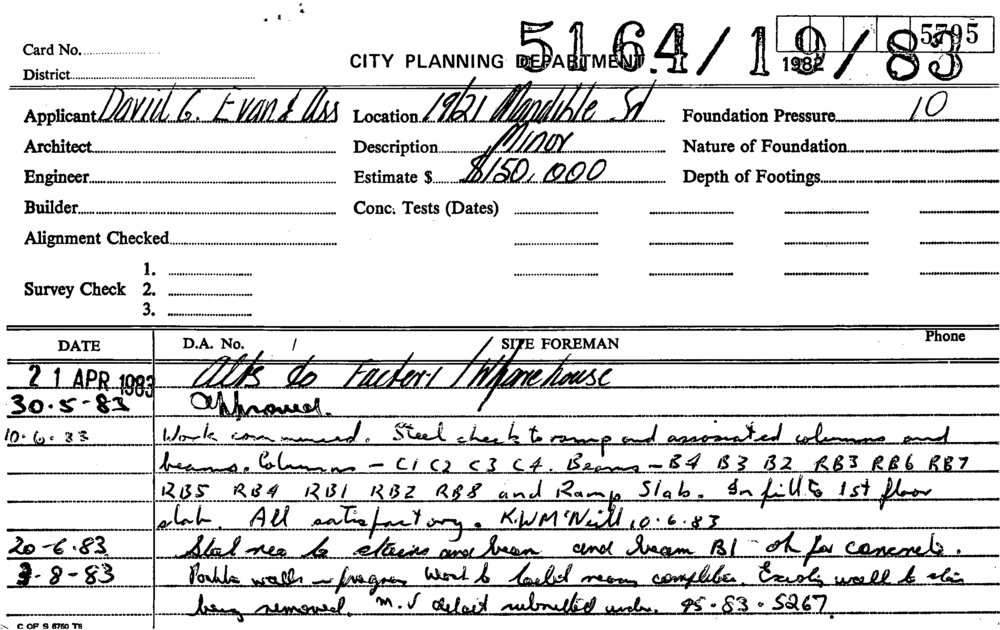 5164/19/83
5795
1982
Card No.
CITY PLANNING DEPARTMENT.
District
Applicant David G. Evan & Ass Location 19/21 Mandible St Foundation Pressure 10
Architect Description Minor Nature of Foundation
Engineer Estimate $ $150,000 Depth of Footings
Builder Conc. Tests (Dates)
Alignment Checked
1.
Survey Check 2.
3.
DATE D.A. No. / SITE FOREMAN Phone
21 APR 1983 Alts to Factory/Warehouse
30.5-83 Approved.
10.6.83 Work commenced. Steel check to ramp and associated columns and
beams. Columns - C1 C2 C3 C4. Beams - B4 B3 B2 RB3 RB6 RB7
RB5 RB4 RB1 RB2 RB8 and Ramp Slab. In fill to 1st floor
slab. All satisfactory. K.W McNeill 10.6.83
20-6.83 Steel reo to stairs and beam and beam B1 - ok for concrete.
3-8-83 walls in progress Work to completed. wall to
being removed. M.S detail submitted under 45.83.5267.
C OF S 6760 T8